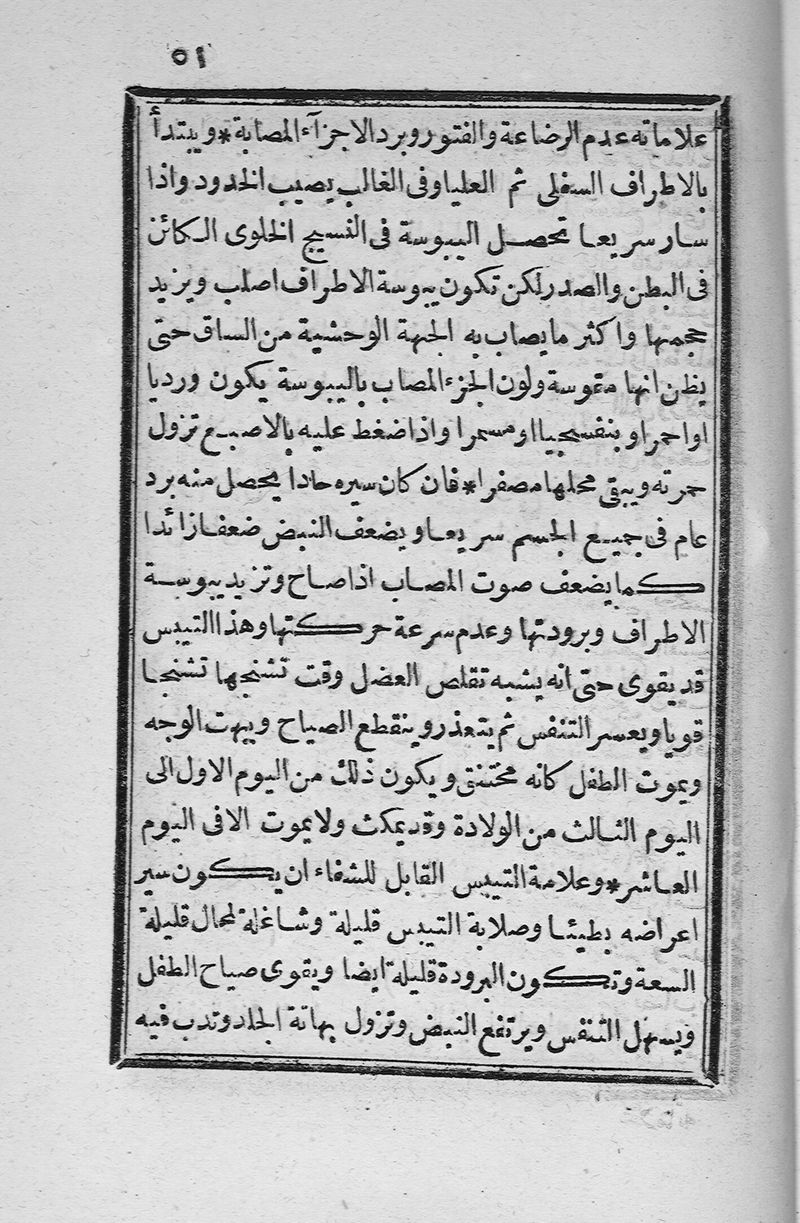 ٥١
علاماته عدم الرضاعة والفتور وبرد الاجزآء المصابة * ويبتدأ
بالاطراف السفلى ثم العليا وفى الغالب يصيب الخدود واذا
سار سريعا تحصل اليبوسة فى النسيج الخلوى الكائن
فى البطن والصدر لكن تكون يبوسة الاطراف اصلب ويزيد
حجمها واكثر مايصاب به الجهة الوحشية من الساق حتى
يظن انها مقوسة ولون الجزء المصاب باليبوسة يكون ورديا
اواحمر او بنفسجيا او مسمرا واذا ضغط عليه بالاصبع تزول
حمرته ويبقى محلها مصفرا * فان كان سيره حادا يحصل منه برد
عام فى جميع الجسم سريعا ويضعف النبض ضعفا زائدا
كما يضعف صوت المصاب اذا صاح وتزيد يبوسة
الاطراف وبرودتها وعدم سرعة حركتها وهذا التيبس
قد يقوى حتى انه يشبه تقلص العضل وقت تشنجها تشنجا
قويا ويعسر التنفس ثم يتعذر وينقطع الصياح ويبهت الوجه
ويموت الطفل كانه مختنق ويكون ذلك من اليوم الاول الى
اليوم الثالث من الولادة وقد يمكث ولا يموت الا فى اليوم
العاشر * وعلامة التيبس القابل للشفاء ان يكون سير
اعراضه بطيئا وصلابة التيبس قليلة وشاغلة لمحال قليلة
السعة وتكون البرودة قليلة ايضا ويقوى صياح الطفل
ويسهل التنفس ويرتفع النبض وتزول بهاتة الجلد وتدب فيه